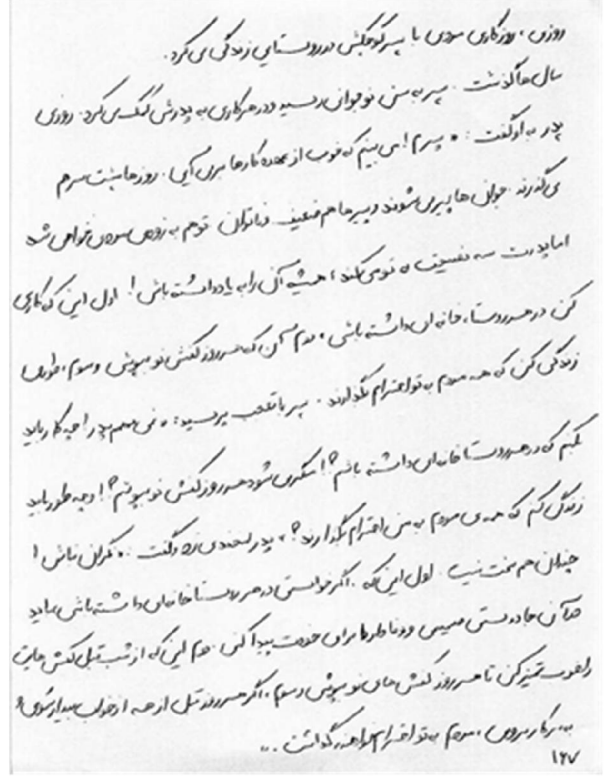 روزی، روزگاری مردی با پسر کوچکش در روستایی زندگی می کرد.
سال ها گذشت. پسر به سن نوجوانی رسید و در هر کاری به پدرش کمک می کرد. روزی
پدر به او گفت: «پسرم! می بینم که خوب از عهده کارها برمی آیی. روزها پشت سر هم
می گذرند. جوان ها پیر می شوند و پیرها هم ضعیف و ناتوان. تو هم به زودی مردی خواهی شد
اما پدرت سه نصیحت به تو می کند، همیشه آن را به یاد داشته باش! اول این که کاری
کن در هر روستا، خانه ای داشته باشی، دوم آن که هر روز کفش نو بپوش و سوم، طوری
زندگی کن که همه مردم به تو احترام بگذارند. پسر با تعجب پرسید: «نمی فهمم پدر! چه کار باید
بکنم که در هر روستا خانه ای داشته باشم؟! مگر می شود هر روز کفش نو بپوشم؟! و چه طور باید
زندگی کنم که همه ی مردم به من احترام بگذارند؟» پدر لبخندی زد و گفت: «نگران نباش!
چندان هم سخت نیست. اول این که، اگر خواستی در هر روستا خانه ای داشته باشی، باید
در آن جا دوستی صمیمی و وفادار برای خودت پیدا کنی. دوم این که از شب قبل کفش هایت
را خوب تمیز کن تا هر روز کفش های نو بپوشی و سوم، اگر هر روز قبل از همه از خواب بیدار شوی و
به سر کار بروی، مردم به تو احترام خواهند گذاشت...
۱۶۷